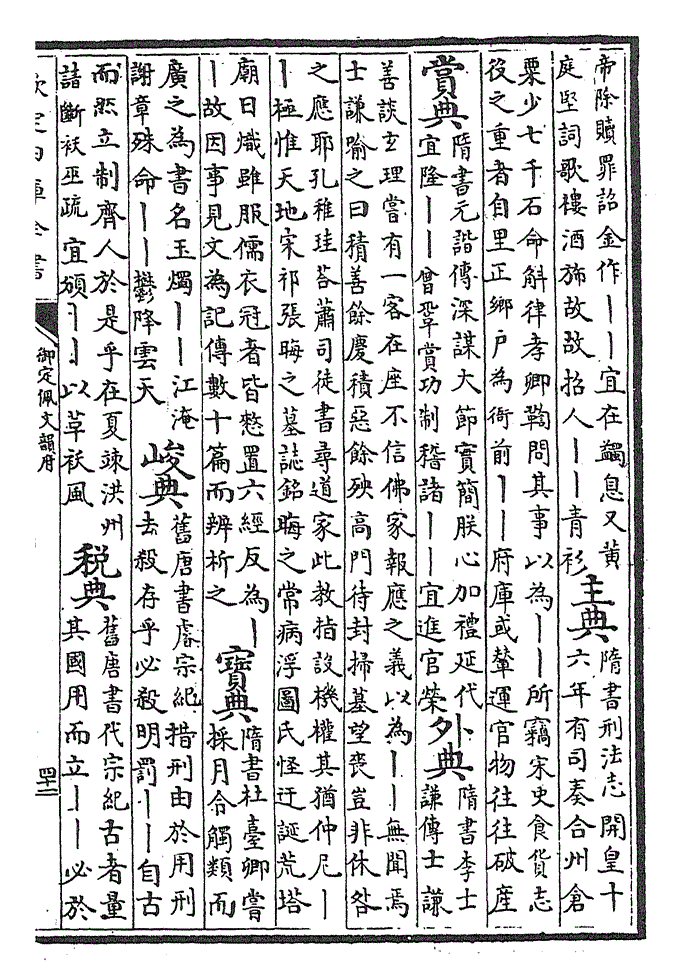 帝除贖罪詔金作丨丨宜在蠲息又黃
庭堅詞歌樓酒斾故故招人丨丨青衫
主典
隋書刑法志開皇十
六年有司奏合州倉
粟少七千石命斛律孝卿鞫問其事以為丨丨所竊宋史食貨志
役之重者自里正鄉户為衙前丨丨府庫或輦運官物往往破産
賞典
隋書元諧傳深謀大節實簡朕心加禮延代
宜隆丨丨曾鞏賞功制稽諸丨丨宜進官榮
外典
隋書李士
謙傳士謙
善談玄理嘗有一客在座不信佛家報應之義以為丨丨無聞焉
士謙喻之曰積善餘慶積惡餘殃高門待封掃墓望喪豈非休咎
之應耶孔稚珪荅蕭司徒書尋道家此教指設機權其猶仲尼丨
丨極惟天地宋祁張晦之墓誌銘晦之常病浮圖氏怪迂誕荒塔
廟日熾雖服儒衣冠者皆憖置六經反為丨
丨故因事見文為記傳數十篇而辨析之
寶典
隋書杜臺卿嘗
採月令觸類而
廣之為書名玉燭丨丨江淹
謝章殊命丨丨鬱降雲天
峻典
舊唐書睿宗紀措刑由於用刑
去殺存乎必殺明罰丨丨自古
而然立制齊人於是乎在夏竦洪州
請斷祅巫疏宜頒丨丨以革祅風
税典
舊唐書代宗紀古者量
其國用而立丨丨必於
欽定四庫全書
御定佩文韻府
四十二